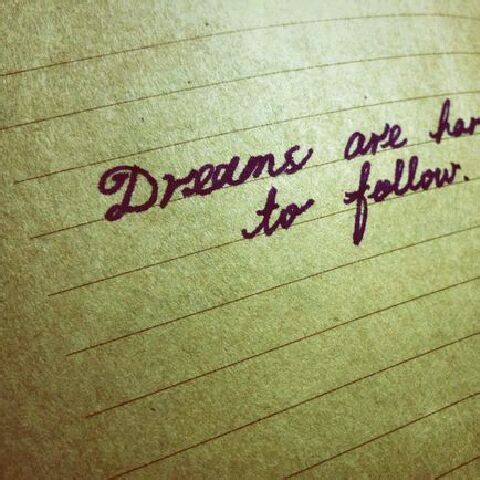 Dreams are har
to follow.